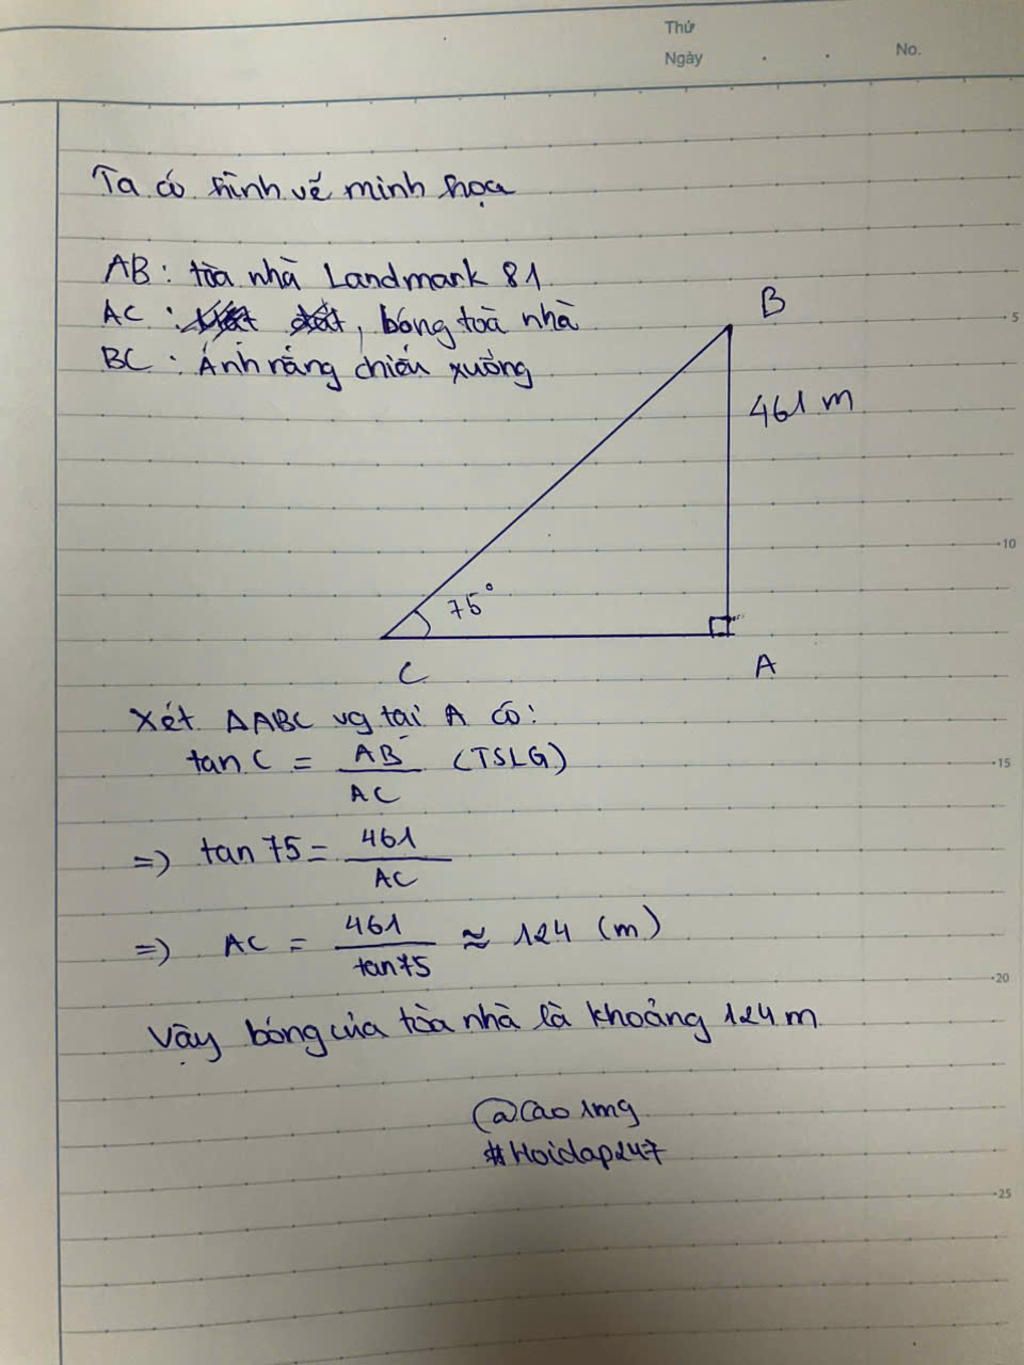 Thứ
Ngày . . No.
Ta có hình vẽ minh họa
AB: tòa nhà Landmark 81
AC: , bóng toà nhà
BC: Ánh nắng chiếu xuống
B
5
461 m
10
75°
C
A
Xét ΔABC vg tại A có:
tan C = AB/AC (TSLG)
15
=> tan 75 = 461/AC
=> AC = 461/tan75 ≈ 124 (m)
20
Vậy bóng của tòa nhà là khoảng 124m
@Cao1mg
#Hoidap247
25